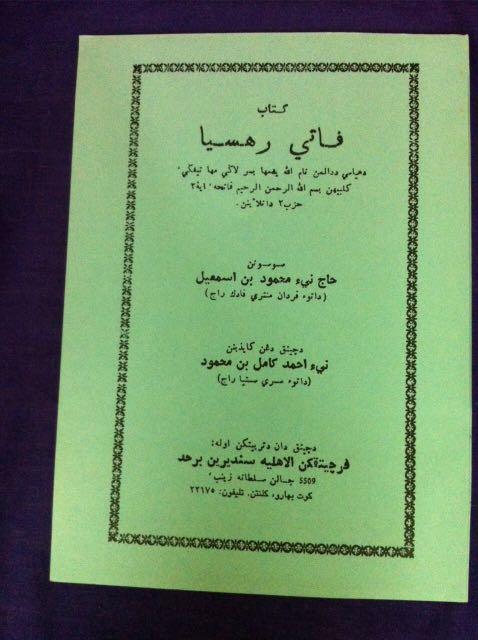 كتاب
ڤاتي رهسيا
دهياسي ددالمن نام الله يڠمها بسر لاڬي مها تيڠڬي،
كلبيهن بسم الله الرحمن الرحيم فاتحه، اية٢
حزب٢ دانلاءينن.
سوسونن
حاج نيء محمود بن اسمعيل
(داتوء ڤردان منتري ڤادك راج)
دچيتق دڠن كإيذينن
نيء احمد كامل بن محمود
(داتوء سري ستيا راج)
دچيتق دان دتربيتكن اوله:
ڤرچيتقكن الاهليه سنديرين برحد
5509 جالن سلطانه زينب،
كوت بهارو، كلنتن. تليفون: ٢٢١٧٥